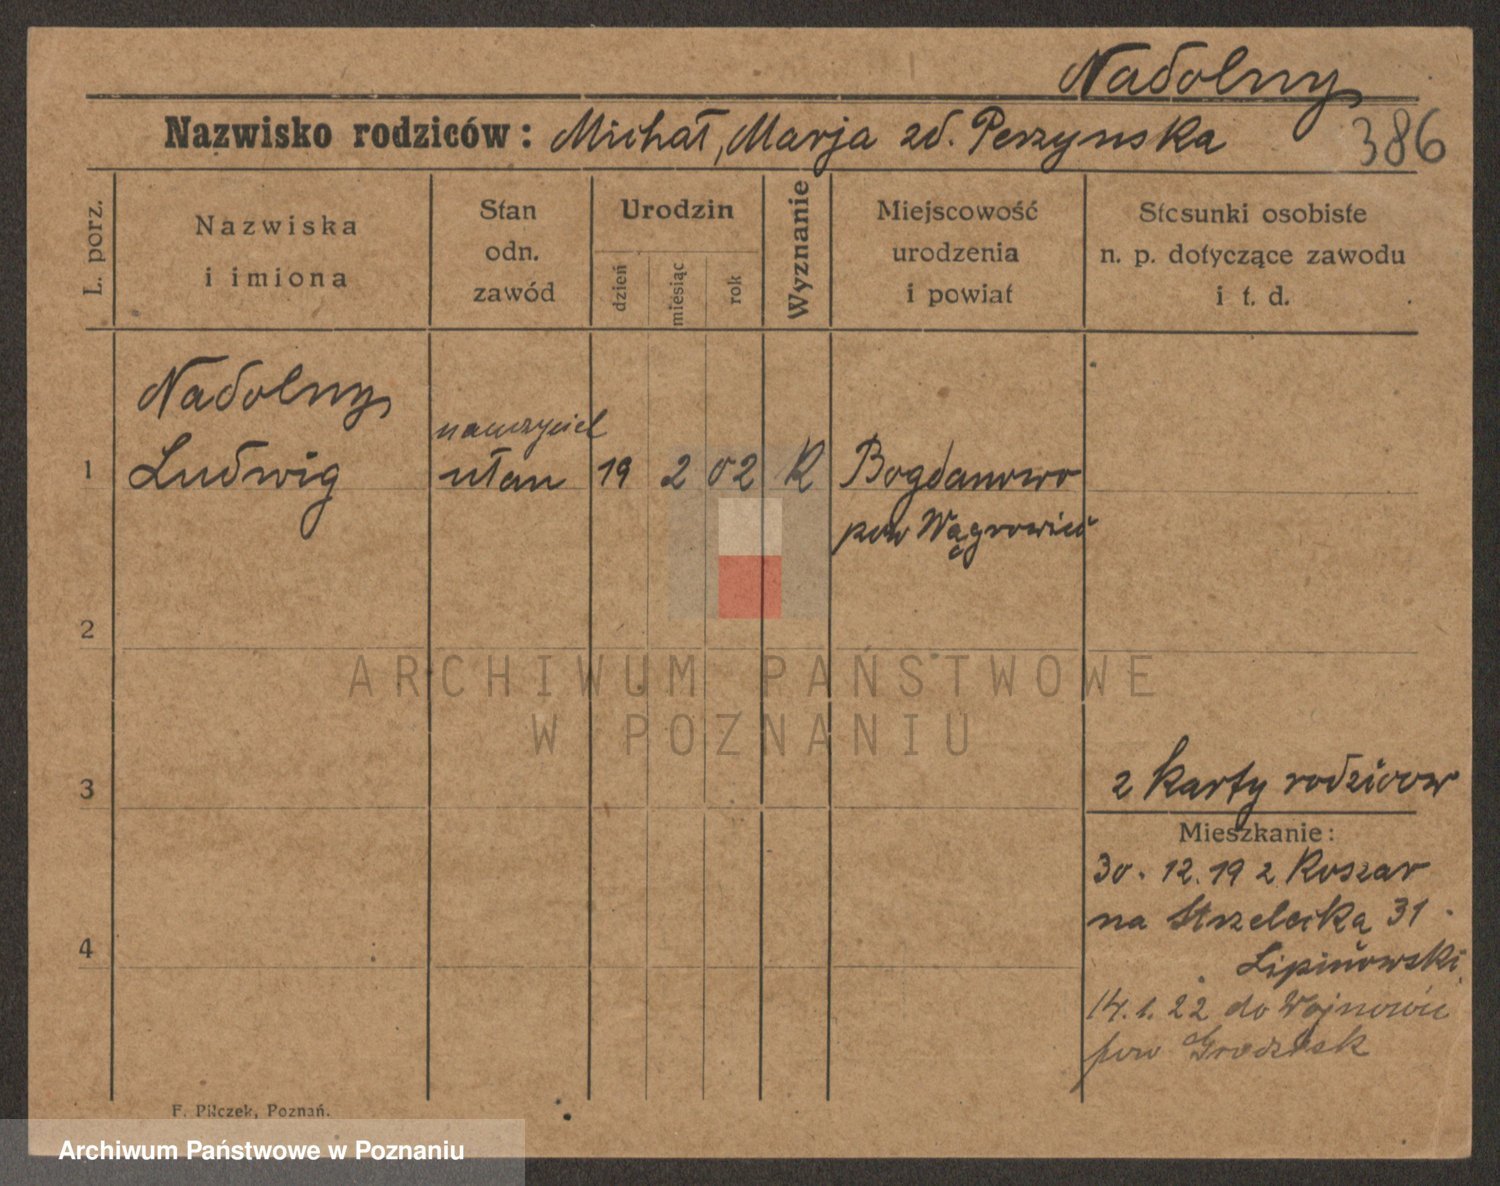 Nadolny
Nazwisko rodziców: Michał, Marja zd. Perzynska
386
L. porz.
Nazwiska
i imiona
Stan
odn.
zawód
Urodzin
dzień
miesiąc
rok
Wyznanie
Miejscowość
urodzenia
i powiat
Stosunki osobiste
n. p. dotyczące zawodu
i t. d.
Nadolny
nauczyciel
1 Ludwig ułan 19 2 02 K Bogdanowo
pow Wągrowiec
2
ARCHIWUM PAŃSTWOWE
W POZNANIU
z karty rodzicow
3
Mieszkanie:
30. 12. 19 z Koszar
na Strzelecką 31
4
Lipinowski
14. 1. 22 do Wojnowic
pow Grodzisk
F. Pilczek, Poznań.
Archiwum Państwowe w Poznaniu